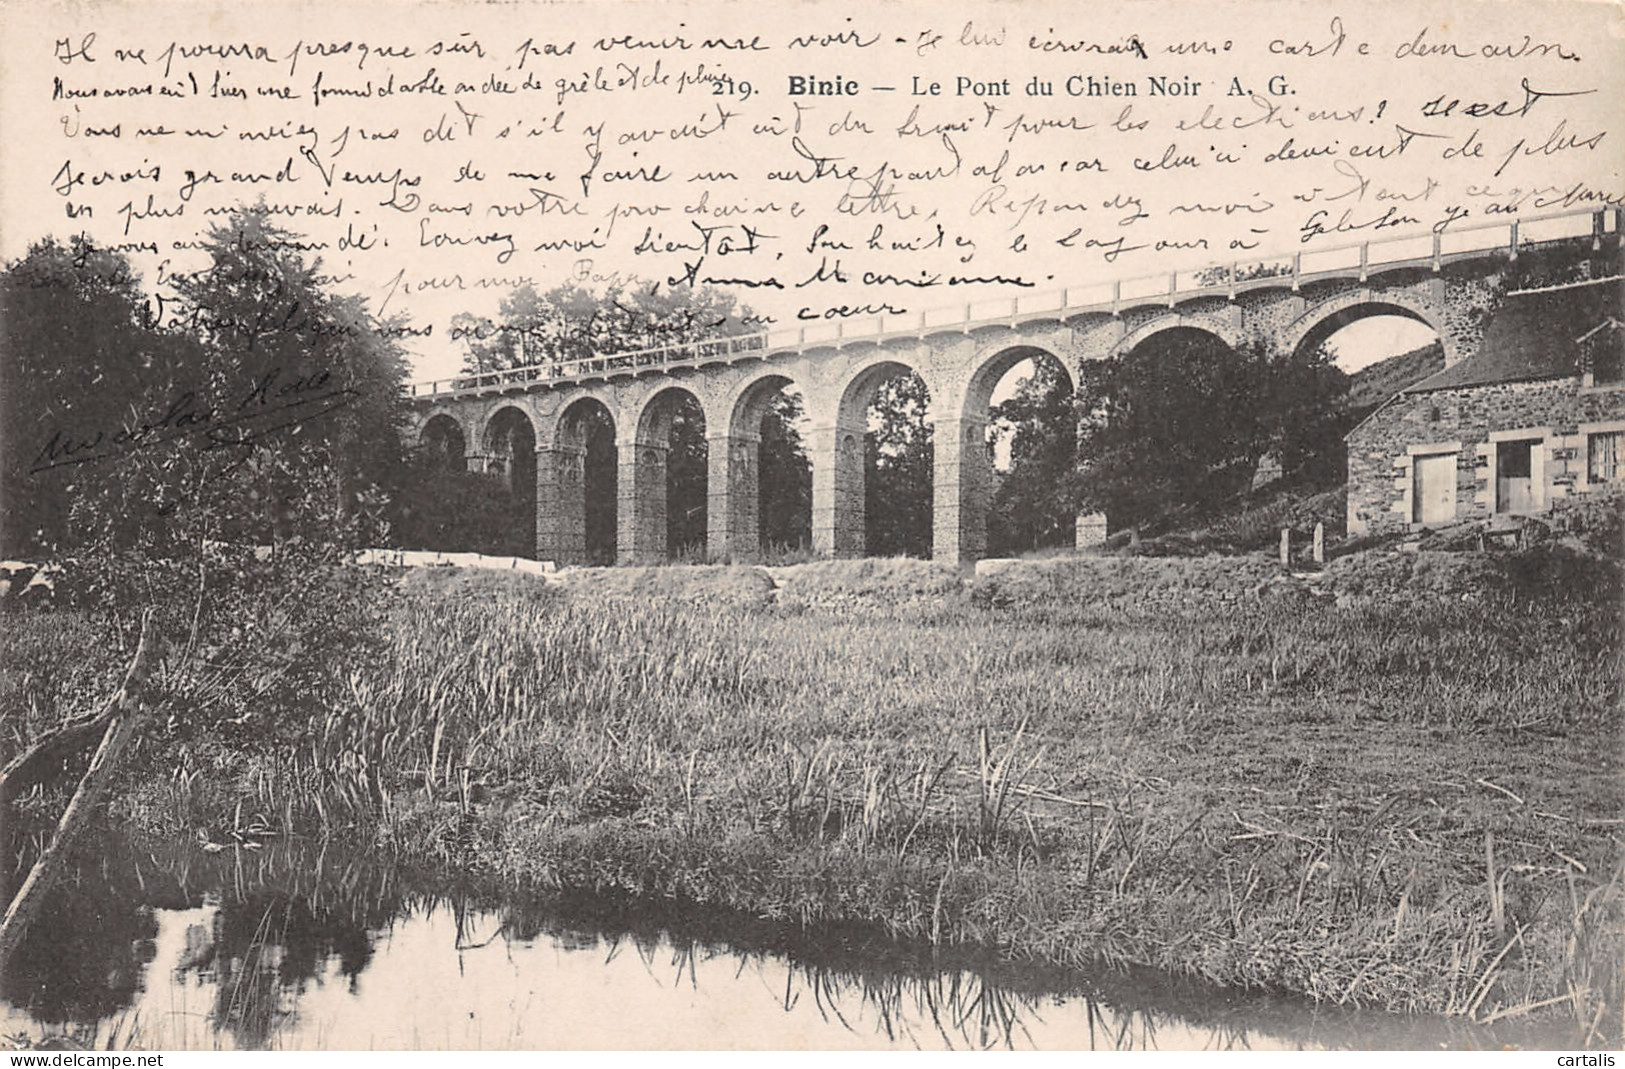 Il ne pourra presque sûr pas venir me voir - Je lui écrirai une carte demain.
Nous avons eu hier une formidable ondée de grêle et de pluie
219. Binic — Le Pont du Chien Noir A. G.
Vous ne m'aviez pas dit s'il y avait eût du bruit pour les elections? Il est
Je crois grand temps de me faire un autre pantalon car celui ci devient de plus
en plus mauvais. Dans votre prochaine lettre, Répondez moi à tout ce que
je vous ai demandé. Ecrivez moi bientôt, Souhaitez le bonjour à
pour moi Papa, Anna Marianne.
Votre fils qui vous aime de tout son coeur
cartalis
www.delcampe.net